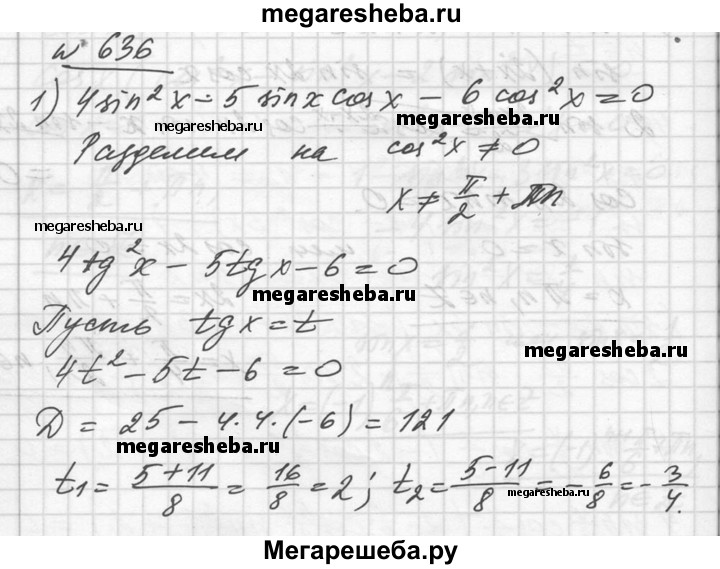 megaresheba.ru
№ 636
1) 4 sin²x - 5 sin x cos x - 6 cos²x = 0
megaresheba.ru megaresheba.ru
Разделим на cos²x ≠ 0
x ≠ π/2 + πn
megaresheba.ru
4 tg²x - 5 tg x - 6 = 0
megaresheba.ru
Пусть tg x = t
megaresheba.ru
4t² - 5t - 6 = 0
D = 25 - 4·4·(-6) = 121
megaresheba.ru
t₁ = (5+11)/8 = 16/8 = 2; t₂ = (5-11)/8 = -6/8 = -3/4.
megaresheba.ru
Мегарешеба.ру